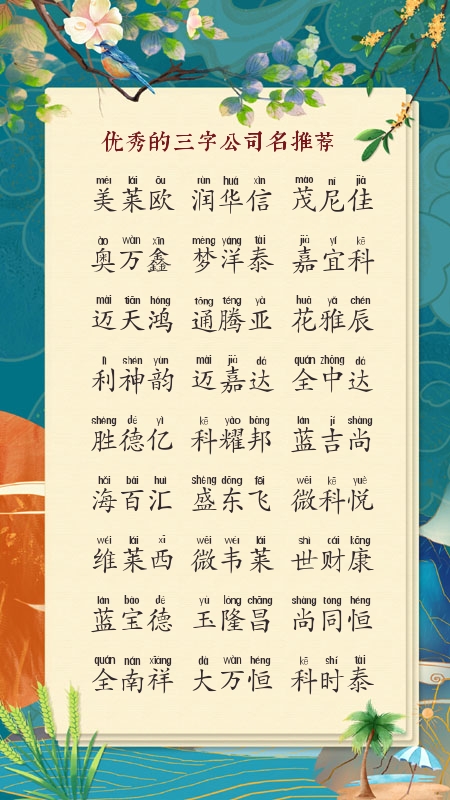 优秀的三字公司名推荐
měi lái ōu rùn huá xìn mào ní jiā
美莱欧 润华信 茂尼佳
ào wàn xīn mèng yáng tài jiā yí kē
奥万鑫 梦洋泰 嘉宜科
mài tiān hóng tōng téng yà huā yǎ chén
迈天鸿 通腾亚 花雅辰
lì shén yùn mài jiā dá quán zhōng dá
利神韵 迈嘉达 全中达
shèng dé yì kē yào bāng lán jí shàng
胜德亿 科耀邦 蓝吉尚
hǎi bǎi huì shèng dōng fēi wēi kē yuè
海百汇 盛东飞 微科悦
wéi lái xī wēi wéi lái shì cái kāng
维莱西 微韦莱 世财康
lán bǎo dé yù lóng chāng shàng tóng héng
蓝宝德 玉隆昌 尚同恒
quán nán xiáng dà wàn héng kē shí tài
全南祥 大万恒 科时泰